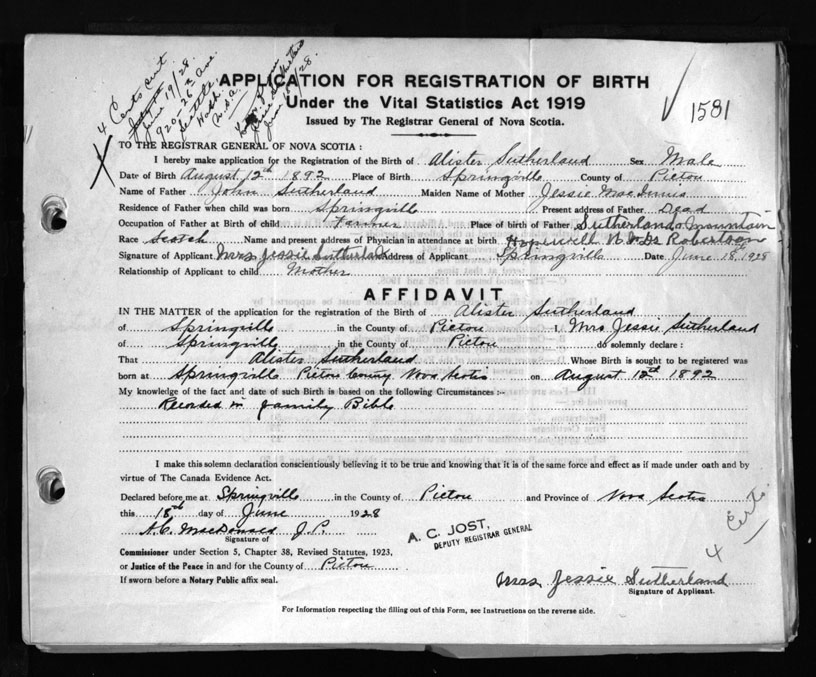 4 Certs sent
June 19/28
922-26th Ave.
Seattle,
Wash.
U.S.A.
June 18/28.
APPLICATION FOR REGISTRATION OF BIRTH
Under the Vital Statistics Act 1919
Issued by The Registrar General of Nova Scotia.
1581
TO THE REGISTRAR GENERAL OF NOVA SCOTIA:
I hereby make application for the Registration of the Birth of Alister Sutherland Sex Male
Date of Birth August 12th 1892 Place of Birth Springville County of Pictou
Name of Father John Sutherland Maiden Name of Mother Jessie MacInnis
Residence of Father when child was born Springville Present address of Father Dead
Occupation of Father at Birth of child Farmer Place of birth of Father Sutherlands Mountain
Race Scotch Name and present address of Physician in attendance at birth Hopewell N.S. Dr Robertson
Signature of Applicant Mrs Jessie Sutherland Address of Applicant Springville Date June 18th 1928
Relationship of Applicant to child Mother
AFFIDAVIT
IN THE MATTER of the application for the registration of the Birth of Alister Sutherland
of Springville in the County of Pictou I, Mrs Jessie Sutherland
of Springville in the County of Pictou do solemnly declare:
That Alister Sutherland Whose Birth is sought to be registered was
born at Springville Pictou County Nova Scotia on August 12th 1892
My knowledge of the fact and date of such Birth is based on the following Circumstances:-
Recorded in family Bible
I make this solemn declaration conscientiously believing it to be true and knowing that it is of the same force and effect as if made under oath and by
virtue of The Canada Evidence Act.
Declared before me at Springville in the County of Pictou and Province of Nova Scotia
this 18th day of June 1928
A.C. MacDonald J.P.
Signature of
A. C. JOST,
DEPUTY REGISTRAR GENERAL
4 Certs.
Commissioner under Section 5, Chapter 38, Revised Statutes, 1923,
or Justice of the Peace in and for the County of Pictou
If sworn before a Notary Public affix seal.
Mrs Jessie Sutherland
Signature of Applicant.
For Information respecting the filling out of this Form, see Instructions on the reverse side.